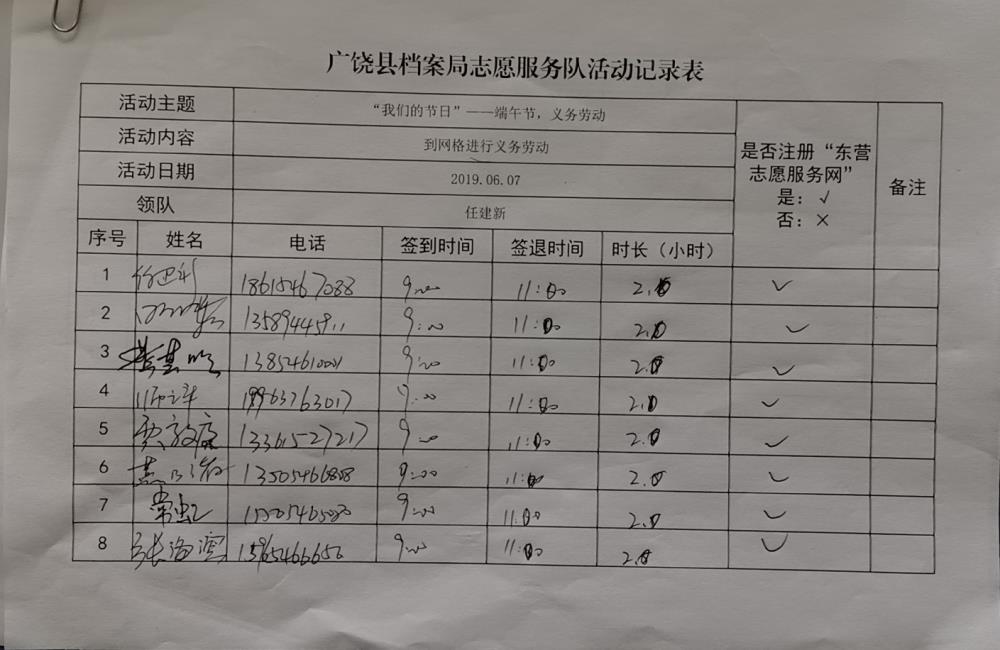 广饶县档案局志愿服务队活动记录表
活动主题 “我们的节日”——端午节，义务劳动
活动内容 到网格进行义务劳动
活动日期 2019.06.07
领队 任建新
是否注册“东营
志愿服务网”
是：√
否：×
备注
序号 姓名 电话 签到时间 签退时间 时长（小时）
1 18615467088 9:00 11:00 2.0 ✓
2 13589445911 9:00 11:00 2.0 ✓
3 13854610001 9:00 11:00 2.0 ✓
4 19963763017 9:00 11:00 2.0 ✓
5 贾敬宸 13361527217 9:00 11:00 2.0 ✓
6 13505466808 9:00 11:00 2.0 ✓
7 常虹 9:00 11:00 2.0 ✓
8 张海滨 15965466656 9:00 11:00 2.0 ✓